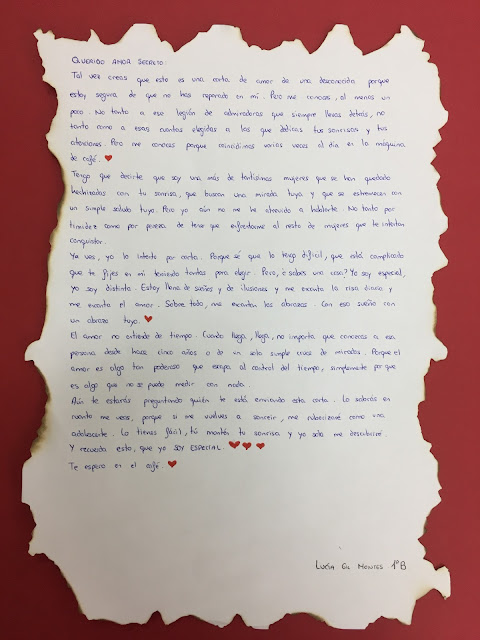 QUERIDO AMOR SECRETO:
Tal vez creas que esto es una carta de amor de una desconocida porque
estoy segura de que no has reparado en mí. Pero me conoces, al menos un
poco. No tanto a ese legión de admiradoras que siempre llevas detrás, no
tanto como a esas cuantas elegidas a las que dedicas tus sonrisas y tus
atenciones. Pero me conoces porque coincidimos varias veces al día en la máquina
de café.
Tengo que decirte que soy una más de tantísimas mujeres que se han quedado
hechizadas con tu sonrisa, que buscan una mirada tuya y que se estremecen con
un simple saludo tuyo. Pero yo aún no me he atrevido a hablarte. No tanto por
timidez como por pereza de tene que enfrentarme al resto de mujeres que te intentan
conquistar.
Ya ves, yo lo intento por carta. Porque sé que lo tengo difícil, que está complicado
que te fijes en mí teniendo tantas para elegir. Pero, ¿sabes una cosa? Yo soy especial,
yo soy distinta. Estoy llena de sueños y de ilusiones y me encanta la risa diaria y
me encanta el amor. Sobre todo, me encantan los abrazos. Con eso sueño con
un abrazo tuyo.
El amor no entiende de tiempo. Cuando llega, llega, no importa que conozcas a esa
persona desde hace cinco años o de un solo simple cruce de miradas. Porque el
amor es algo tan poderoso que escapa al control del tiempo, simplemente porque
es algo que no se puede medir con nada.
Aún te estarás preguntando quién te está enviando esta carta. Lo sabrás en
cuanto me veas, porque si me vuelves a sonreír, me ruborizaré como una
adolescente. Lo tienes fácil, tú mantén tu sonrisa y yo sola me descubriré.
Y recuerda esto, que yo SOY ESPECIAL.
Te espero en el café.
LUCÍA GIL MONTES 1ºB